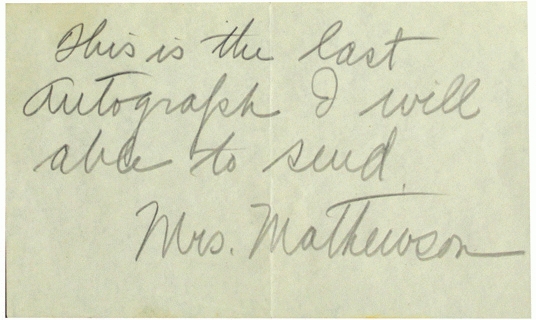 This is the last
Autograph I will
able to send.
Mrs. Mathewson